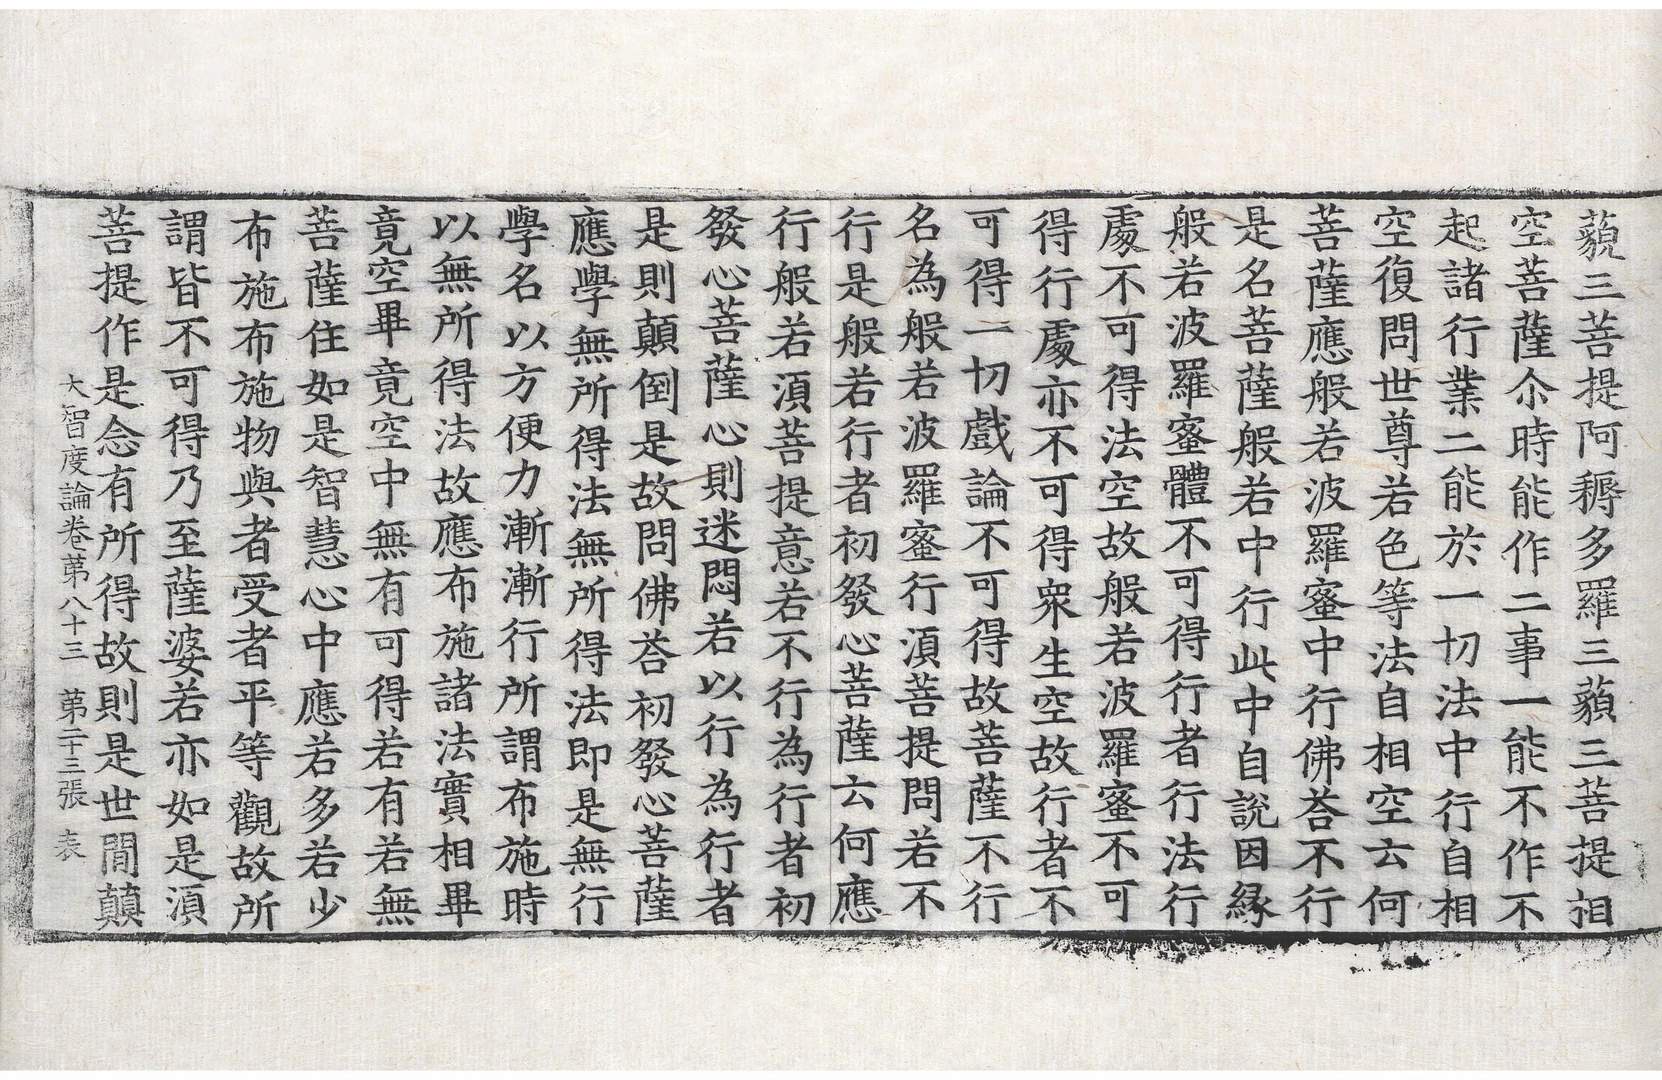 藐三菩提阿耨多羅三藐三菩提相
空菩薩尒時能作二事一能不作不
起諸行業二能於一切法中行自相
空復問世尊若色等法自相空云何
菩薩應般若波羅蜜中行佛荅不行
是名菩薩般若中行此中自說因緣
般若波羅蜜體不可得行者行法行
處不可得法空故般若波羅蜜不可
得行處亦不可得衆生空故行者不
可得一切戲論不可得故菩薩不行
名為般若波羅蜜行湏菩提問若不
行是般若行者初發心菩薩云何應
行般若湏菩提意若不行為行者初
發心菩薩心則迷悶若以行為行者
是則顛倒是故問佛荅初發心菩薩
應學無所得法無所得法即是無行
學名以方便力漸漸行所謂布施時
以無所得法故應布施諸法實相畢
竟空畢竟空中無有可得若有若無
菩薩住如是智慧心中應若多若少
布施布施物與者受者平等觀故所
謂皆不可得乃至薩婆若亦如是湏
菩提作是念有所得故則是世間顛
大智度論卷苐八十三　苐二十三張　表